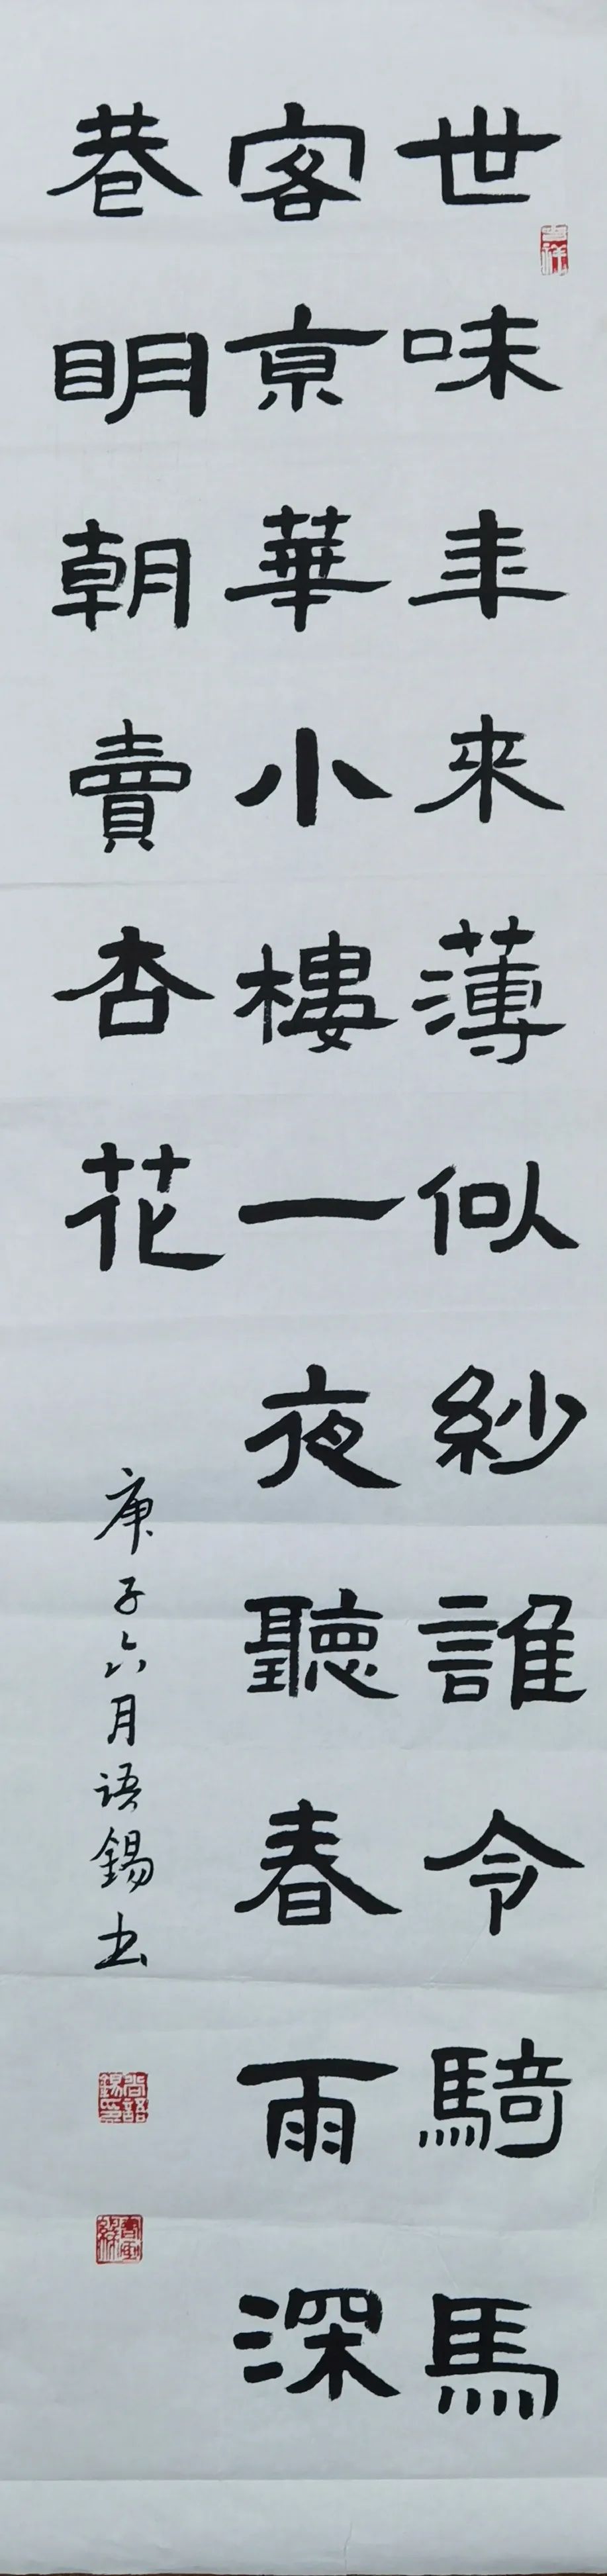 世味年來薄似紗誰令騎馬
客京華小樓一夜聽春雨深
巷明朝賣杏花
庚子六月语錫书
吉祥